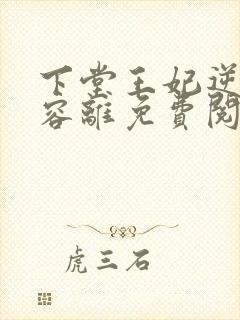 下堂王妃逆
容離免費閱
虎三石